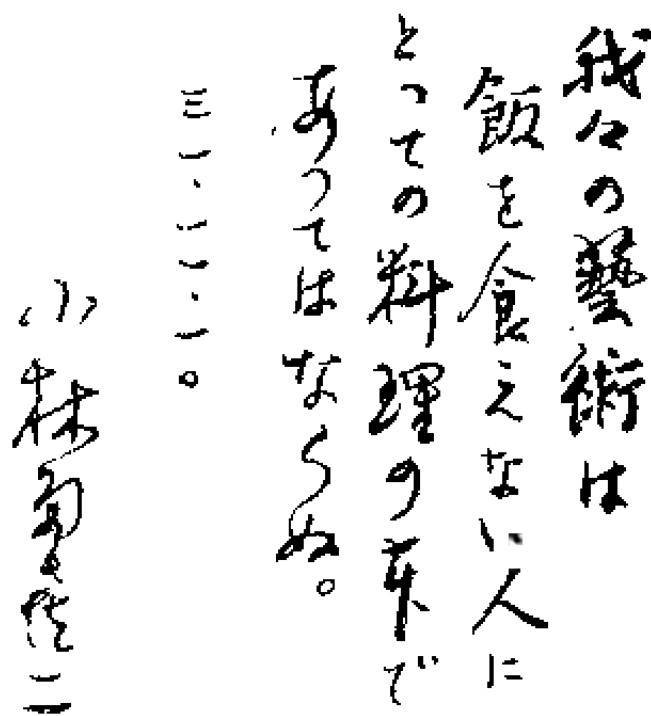 我々の藝術は
飯を食えない人に
とっての料理の本で
あってはならぬ。
三一・一一・一〇
小林多喜二